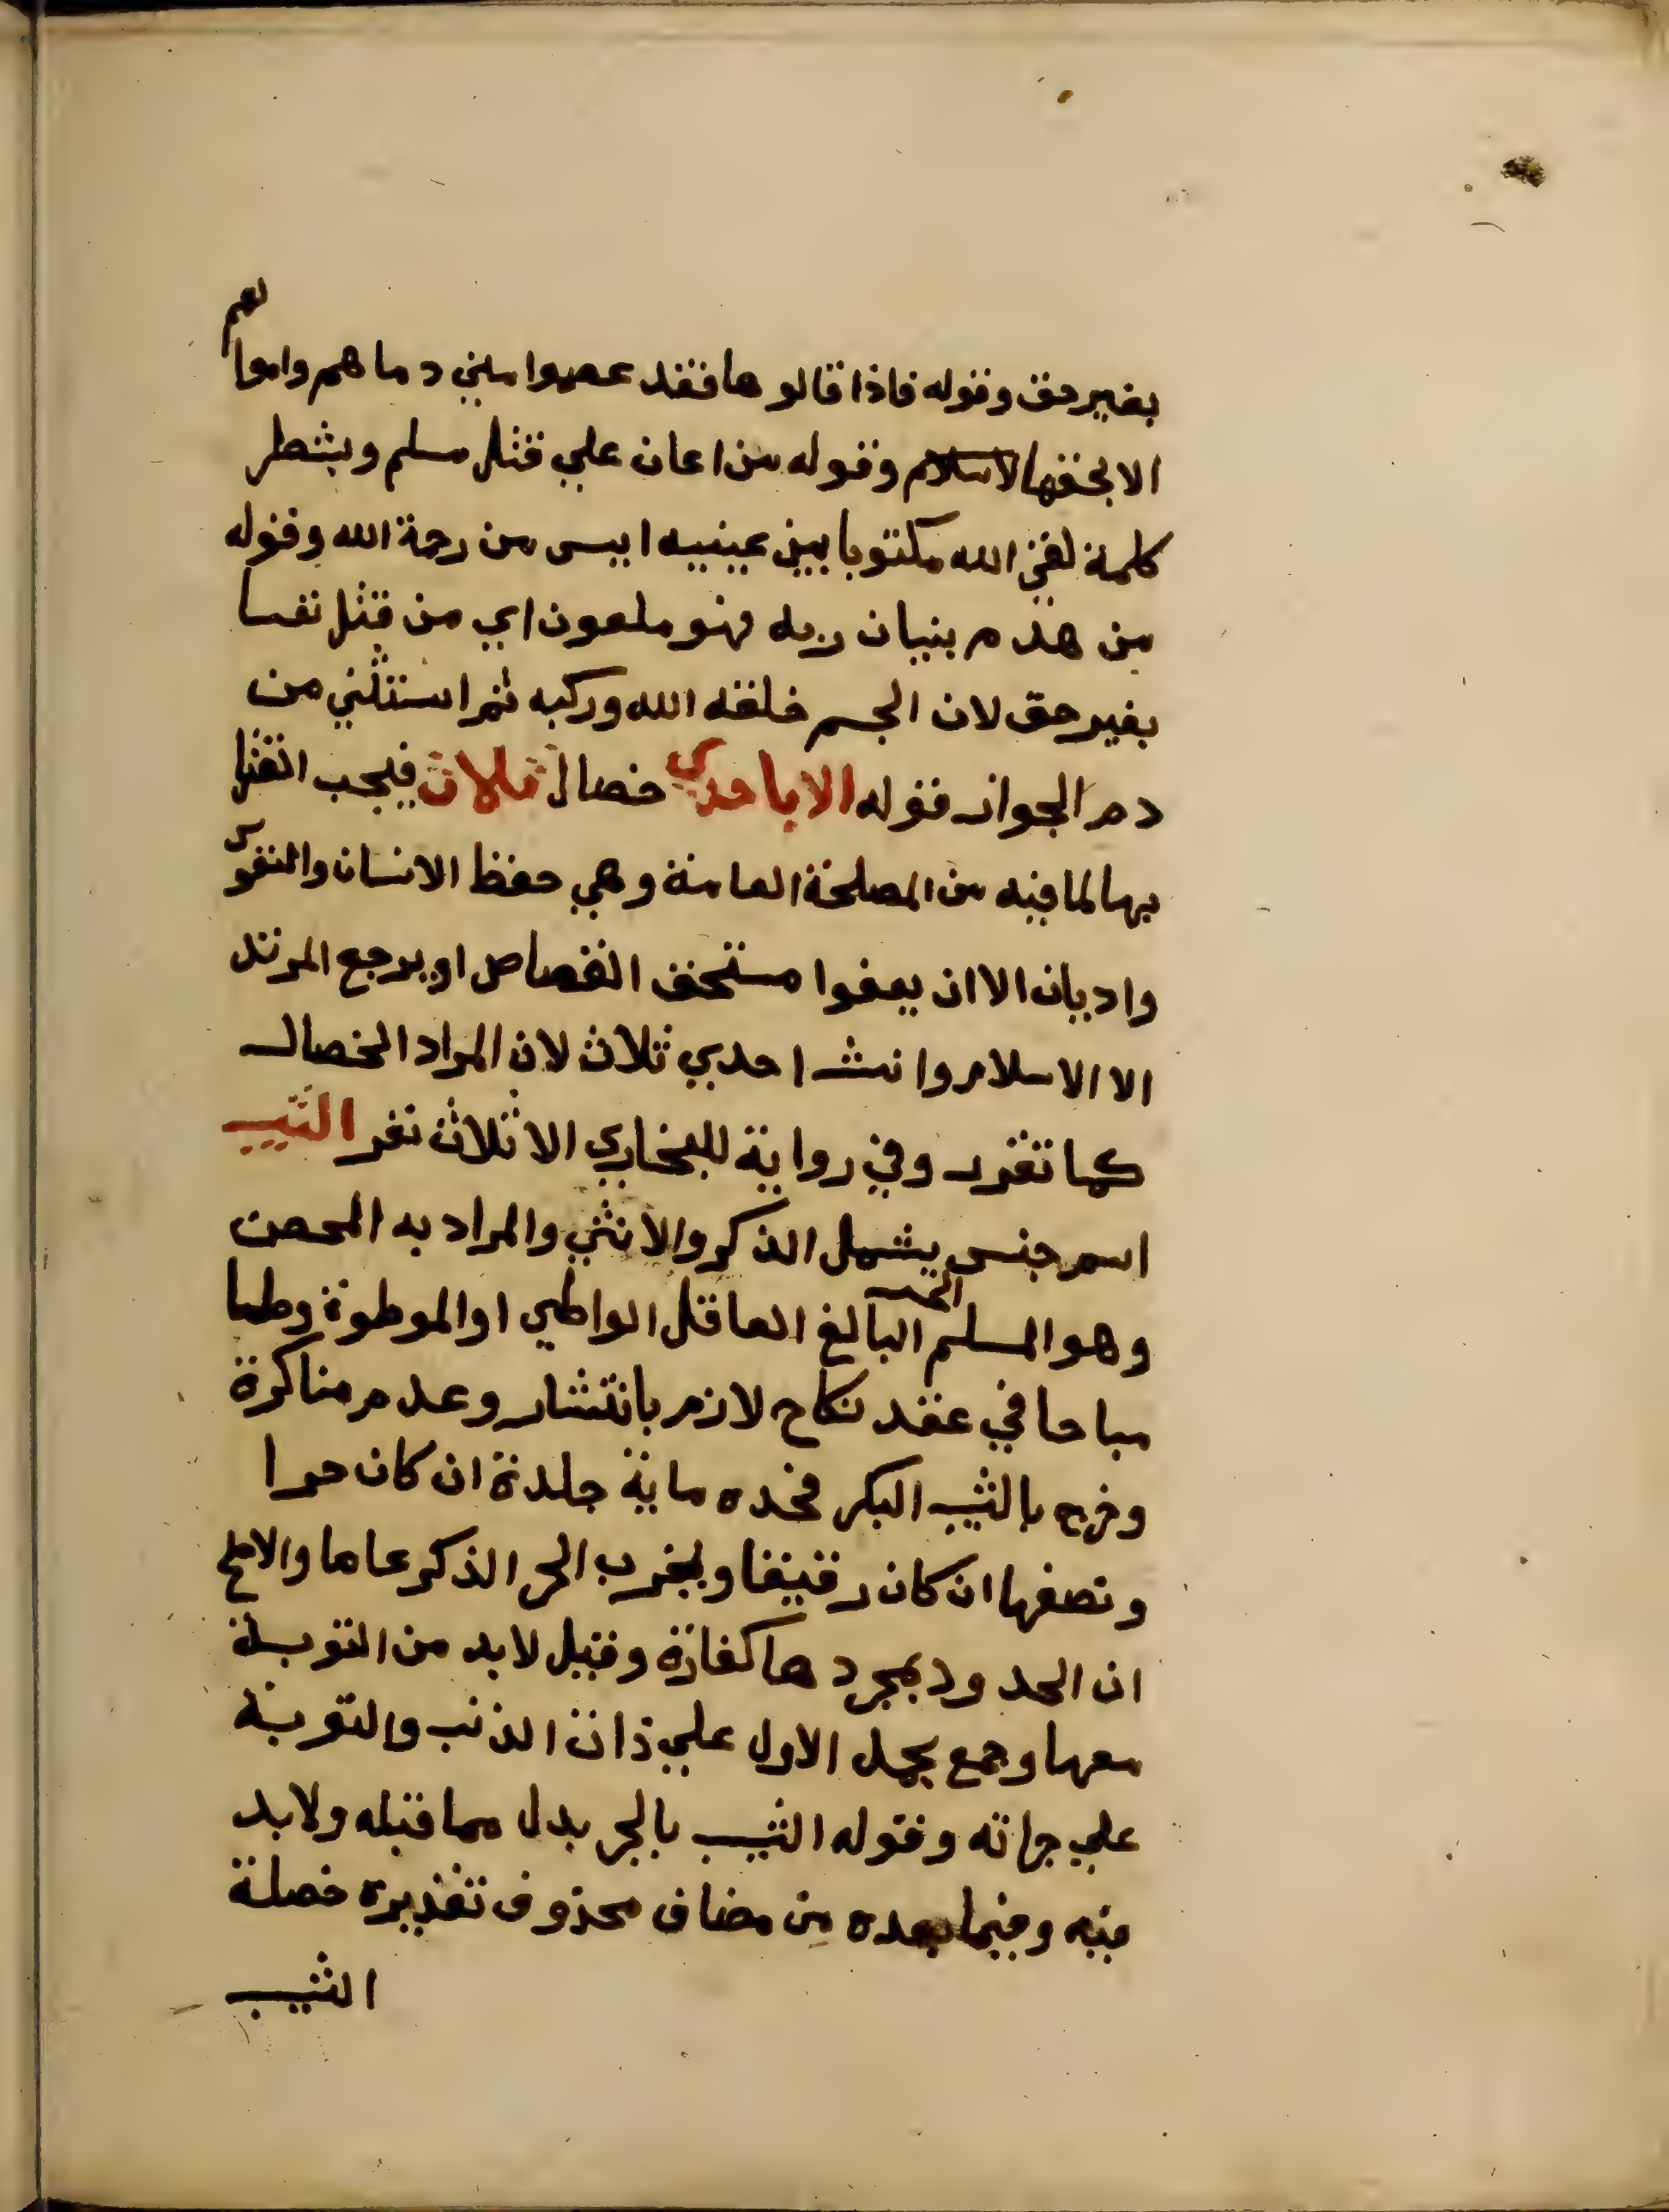 بغير حق وقوله فاذا قالوها فقد عصموا مني دماهم واموالهم
الا بحقها الاسلام وقوله من اعان علي قتل مسلم وبشطر
كلمة لقي الله مكتوبا بين عينيه ايس من رحمة الله وقوله
من هدم بنيان ربه فهو ملعون اي من قتل نفسا
بغير حق لان الجسم خلقه الله وركبه ثم استثني من
دم الجواز قوله الا باحدي خصال ثلاث فيجب القتل
بها لما فيه من المصلحة العامة وهي حفظ الانسان والنفوس
واديان الا ان يعفوا مستحق القصاص او يرجع المرتد
الا الاسلام وانث احدي ثلاث لان المراد الخصال
كما تقرر وفي رواية للبخاري الا ثلاث نفر الثيب
اسم جنس يشمل الذكر والانثي والمراد به المحصن
وهو المسلم الحر البالغ العاقل الواطي او الموطوة وطيا
مباحا في عقد نكاح لازم بانتشار وعدم مناكرة
وخرج بالثيب البكر فحده ماية جلدة ان كان حرا
ونصفها ان كان رقيقا ويغرب الحر الذكر عاما والاصح
ان الحدود بمجردها كفارة وقيل لابد من التوبة
معها وجمع بحمل الاول علي ذات الذنب والتوبة
علي جراته وقوله الثيب بالجر بدل مما قبله ولابد
فيه وفيما بعده من مضاف محذوف تقديره خصلة
الثيب